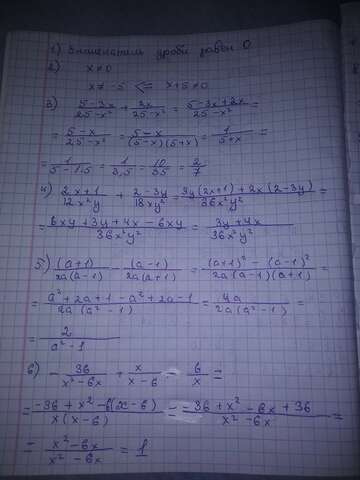 1) Знаменатель дроби равен 0
2) x≠0
x≠-5 <= x+5≠0
3) (5-3x)/(25-x²) + 2x/(25-x²) = (5-3x+2x)/(25-x²) =
= (5-x)/(25-x²) = (5-x)/((5-x)(5+x)) = 1/(5+x) =
= 1/(5-1,5) = 1/3,5 = 10/35 = 2/7
4) (2x+1)/(12x²y) + (2-3y)/(18xy²) = (3y(2x+1)+2x(2-3y))/(36x²y²) =
= (6xy+3y+4x-6xy)/(36x²y²) = (3y+4x)/(36x²y²)
5) (a+1)/(2a(a-1)) - (a-1)/(2a(a+1)) = ((a+1)²-(a-1)²)/(2a(a-1)(a+1)) =
= (a²+2a+1-a²+2a-1)/(2a(a²-1)) = 4a/(2a(a²-1)) =
= 2/(a²-1)
6) -36/(x²-6x) + x/(x-6) - 6/x =
= (-36+x²-6(x-6))/(x(x-6)) = (-36+x²-6x+36)/(x²-6x) =
= (x²-6x)/(x²-6x) = 1